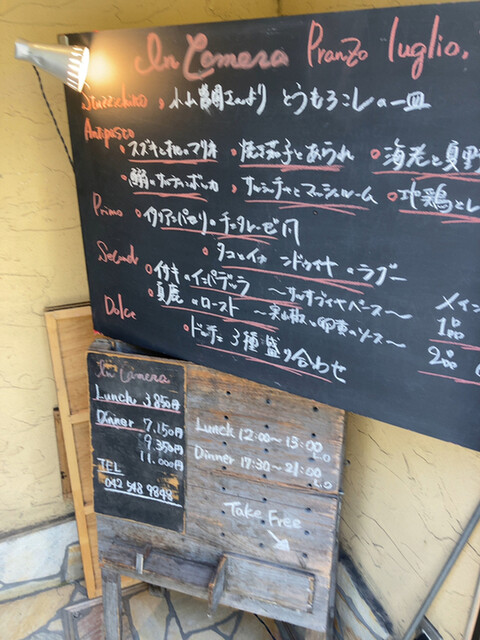 In Camera Pranzo luglio.
Stuzzichino 小山農園さんより とうもろこしの一皿
Antipasto
・スズキと桃のマリネ ・焼き茄子とあられ ・海老と夏野
・サルシッチャとマッシュルーム ・地鶏とレ
Primo ・イタリアンパセリのチェタレーゼ風
・タコとイカ ンドゥイヤのラグー
Secondo ・仔牛のインパデッラ
・真鹿のロースト
Dolce ・ドルチェ3種盛り合わせ
メイン
1品
2品
In Camera
Lunch 3.850円
Dinner 7.150円
9.350円
11.000円
TEL
042 548 9848
Lunch 12:00~13:00 L.O
Dinner 17:30~21:00 L.O
Take Free